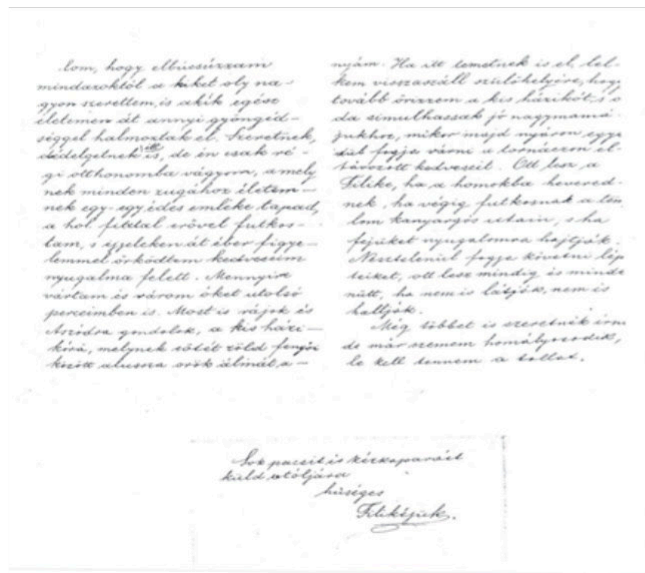 lom, hogy elbúcsúzzam
mindazoktól a kiket oly na-
gyon szerettem, is akik egész
életemen át annyi gyöngéd-
séggel halmoztak el. Szeretnek,
dédelgetnek itt is, de én csak ré-
gi otthonomba vágyom, a mely
nek minden zugához életem-
nek egy-egy édes emléke tapad,
a hol fiatal erővel futkos-
tam, s éjjeleken át éber figye-
lemmel őrködtem kedveseim
nyugalma felett. Mennyire
vártam és várom őket utolsó
perceimben is. Most is rájok és
Aszódra gondolok, a kis házi-
kóra, melynek sötét zöld fenyői
között alussza örök álmát a-
nyám. Ha itt temetnek is el, lel-
kem visszaszáll szülőhelyére, hogy
tovább őrizzem a kis házikót, s o
da simulhassak jó nagymamá-
jukhoz, mikor majd nyáron egye
dül fogja várni a tornácon el-
távozott kedveseit. Ott lesz a
Filike, ha a homokba hevered-
nek, ha végig futkosnak a
lom kanyargós utain, s ha
fejüket nyugalomra hajtják.
Nesztelenül fogja követni lép
teiket, ott lesz mindig és minde
nütt, ha nem is látják, nem is
hallják.
Még többet is szeretnék írni
de már szemem homályosodik,
le kell tennem a tollat.
Sok puszit is kézkaparást
küld utóljára
hűséges
Filikéjük.